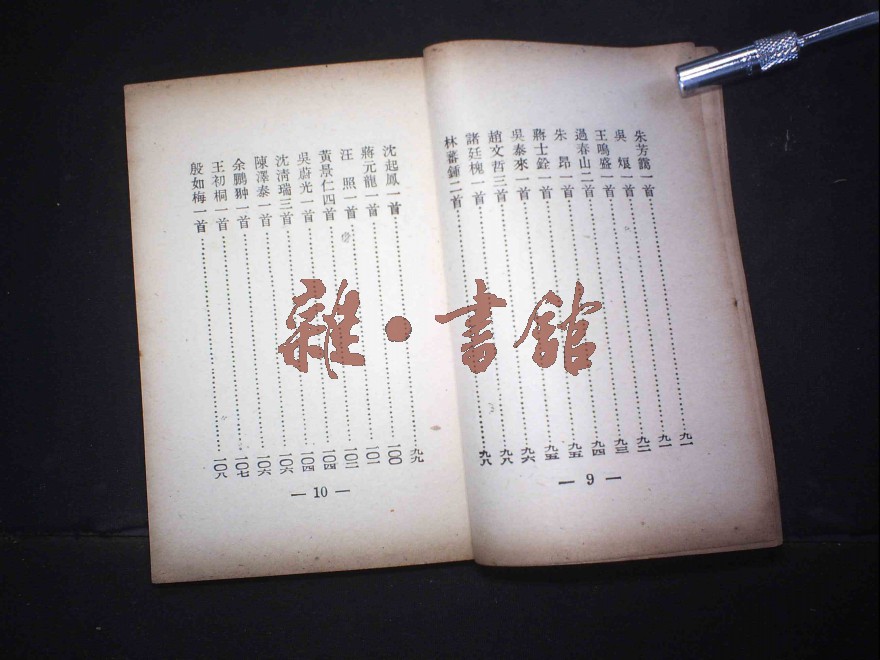 朱芳靄一首……九一
吳烺一首……九一
王鳴盛一首……九二
過春山二首……九三
朱昂一首……九四
蔣士銓一首……九五
吳泰來一首……九五
趙文哲三首……九六
諸廷槐一首……九八
林蕃鍾二首……九八
— 9 —
沈起鳳一首……九九
蔣元龍一首……一〇〇
汪照一首……一〇一
黃景仁四首……一〇二
吳蔚光一首……一〇四
沈清瑞三首……一〇四
陳澤泰一首……一〇六
余鵬翀一首……一〇六
王初桐一首……一〇七
殷如梅一首……一〇八
— 10 —
雜•書館